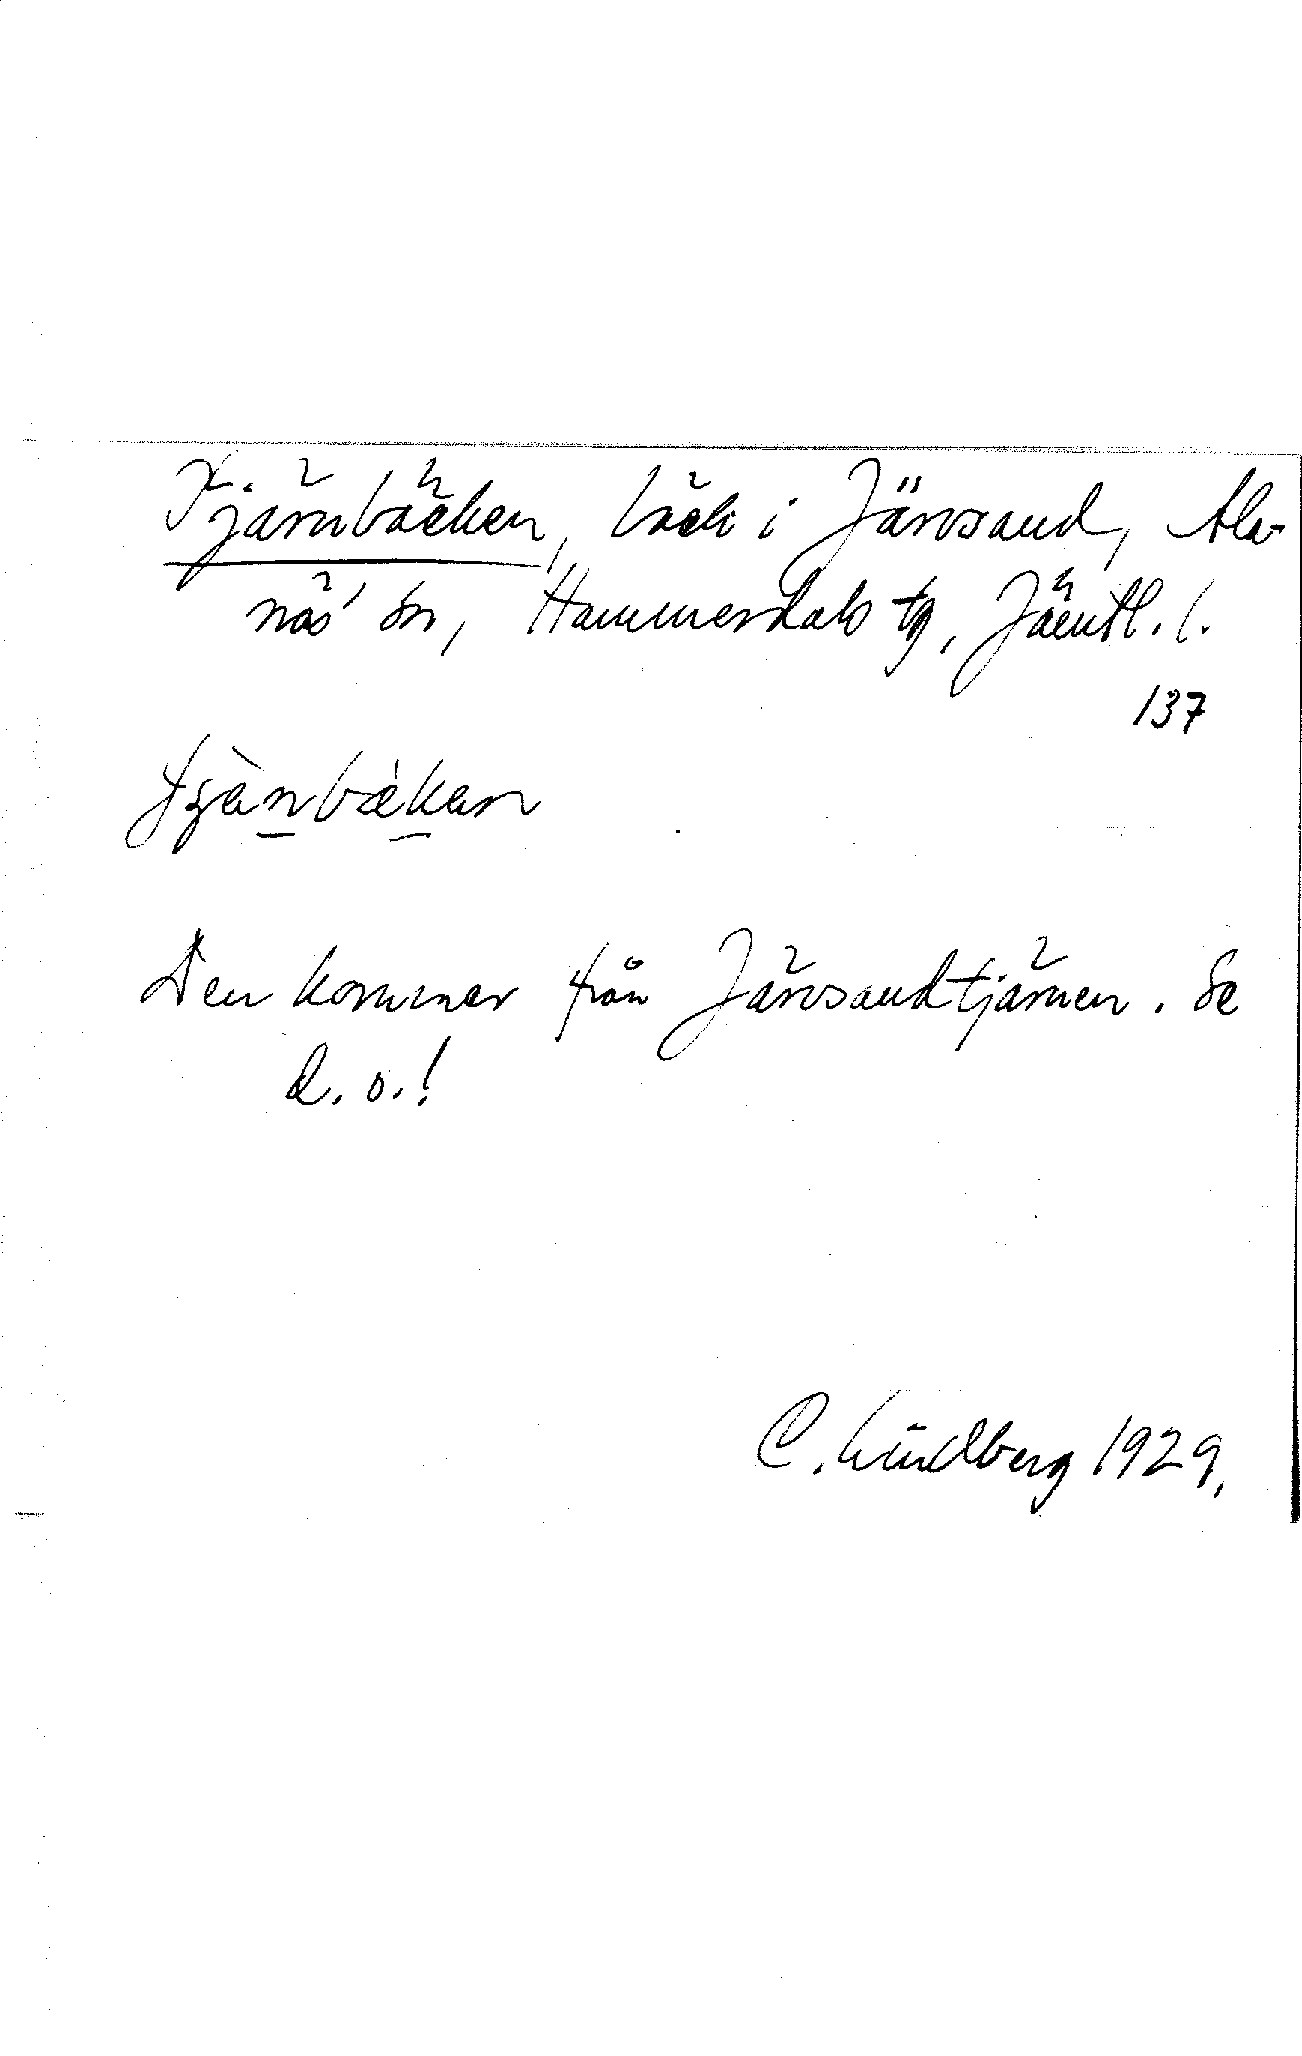 Tjärnbäcken, bäck i Järvsand, Ala-
näs sn, Hammerdals tg, Jämtl. l.
137
Den kommer från Järvsandtjärnen. Se
d. o.!
C. Lindberg 1929.